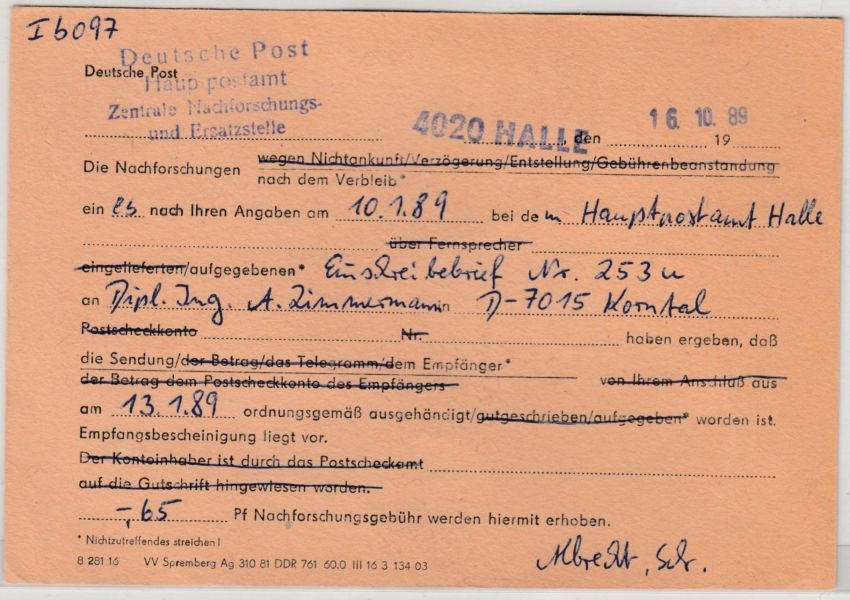 I b 097
Deutsche Post
Deutsche Post
Hauptpostamt
Zentrale Nachforschungs-
und Ersatzstelle
4020 HALLE, den 16. 10. 89 19
Die Nachforschungen wegen Nichtankunft/Verzögerung/Entstellung/Gebührenbeanstandung
nach dem Verbleib*
ein es nach Ihren Angaben am 10.1.89 bei dem Hauptpostamt Halle
über Fernsprecher
eingelieferten/aufgegebenen* Einschreibebrief Nr. 253 u
an Dipl. Ing. A. Zimmermann in D-7015 Korntal
Postscheckkonto Nr. haben ergeben, daß
die Sendung/der Betrag/das Telegramm/dem Empfänger*
der Betrag dem Postscheckkonto des Empfängers von Ihrem Anschluß aus
am 13.1.89 ordnungsgemäß ausgehändigt/gutgeschrieben/aufgegeben* worden ist.
Empfangsbescheinigung liegt vor.
Der Kontoinhaber ist durch das Postscheckamt
auf die Gutschrift hingewiesen worden.
-,65 Pf Nachforschungsgebühr werden hiermit erhoben.
* Nichtzutreffendes streichen!
8 281 16 VV Spremberg Ag 310 81 DDR 761 60.0 III 16 3 134 03
Albrecht, Scr.